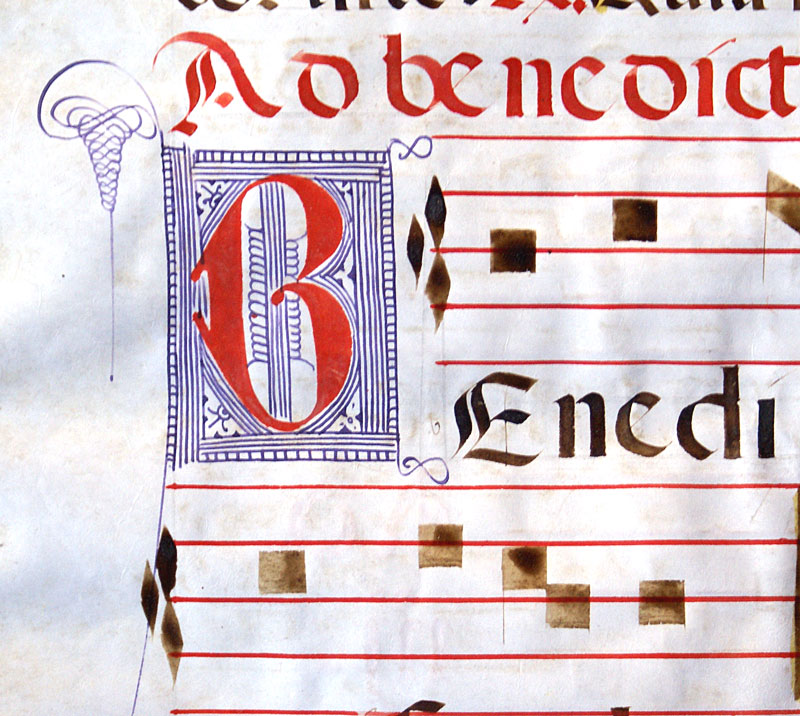 Ad benedict
BEnedi